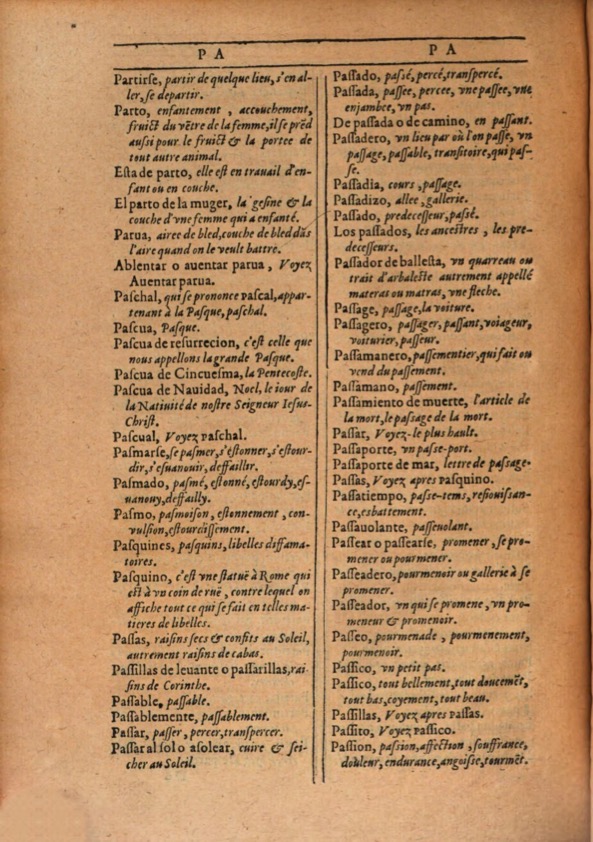 P A
Partirſe, partir de quelque lieu, s'en al-
ler, ſe departir.
Parto, enfantement, accouchement,
fruict du vẽtre de la femme, il ſe prẽd
auſsi pour le fruict & la portee de
tout autre animal.
Eſta de parto, elle eſt en trauail d'en-
fant ou en couche.
El parto de la muger, la geſine & la
couche d'vne femme qui a enfanté.
Parua, airee de bled, couche de bled dãs
l'aire quand on le veult battre.
Ablentar o auentar parua, Voyez
Auentar parua.
Paſchal, qui ſe prononce paſcal, appar-
tenant à la Paſque, paſchal.
Paſcua, Paſque.
Paſcua de reſurrecion, c'eſt celle que
nous appellons la grande Paſque.
Paſcua de Cincueſma, la Pentecoſte.
Paſcua de Nauidad, Noel, le iour de
la Natiuité de noſtre Seigneur Ieſus-
Chriſt.
Paſcual, Voyez paſchal.
Paſmarſe, ſe paſmer, s'eſtonner, s'eſtour-
dir, s'eſuanouir, deffaillir.
Paſmado, paſmé, eſtonné, eſtourdy, eſ-
uanouy, deffailly.
Paſmo, paſmoiſon, eſtonnement, con-
vulſion, eſtourdiſſement.
Paſquines, paſquins, libelles diffama-
toires.
Paſquino, c'eſt vne ſtatuë à Rome qui
eſt à vn coin de ruë, contre lequel on
affiche tout ce qui ſe fait en telles ma-
tieres de libelles.
Paſſas, raiſins ſecs & confits au Soleil,
autrement raiſins de cabas.
Paſſillas de leuante o paſſarillas, rai-
ſins de Corinthe.
Paſſable, paſſable.
Paſſablemente, paſſablement.
Paſſar, paſſer, percer, tranſpercer.
Paſſar al ſol o aſolear, cuire & ſei-
cher au Soleil.
P A
Paſſado, paſsé, percé, tranſpercé.
Paſſada, paſſee, percee, vne paſſee, vne
enjambee, vn pas.
De paſſada o de camino, en paſſant.
Paſſadero, vn lieu par où l'on paſſe, vn
paſſage, paſſable, tranſitoire, qui paſ-
ſe.
Paſſadia, cours, paſſage.
Paſſadizo, allee, gallerie.
Paſſado, predeceſſeur, paſsé.
Los paſſados, les anceſtres, les pre-
deceſſeurs.
Paſſador de balleſta, vn quarreau ou
trait d'arbaleſte autrement appellé
materas ou matras, vne fleche.
Paſſage, paſſage, la voiture.
Paſſagero, paſſager, paſſant, voiageur,
voiturier, paſſeur.
Paſſamanero, paſſementier, qui fait ou
vend du paſſement.
Paſſamano, paſſement.
Paſſamiento de muerte, l'article de
la mort, le paſſage de la mort.
Paſſar, Voyez-le plus hault.
Paſſaporte, vn paſſe-port.
Paſſaporte de mar, lettre de paſſage.
Paſſas, Voyez apres Paſquino.
Paſſatiempo, paſſe-tems, reſiouiſſan-
ce, esbattement.
Paſſauolante, paſſeuolant.
Paſſear o paſſearſe, promener, ſe pro-
mener ou pourmener.
Paſſeadero, pourmenoir ou gallerie à ſe
promener.
Paſſeador, vn qui ſe promene, vn pro-
meneur & promenoir.
Paſſeo, pourmenade, pourmenement,
pourmenoir.
Paſſico, vn petit pas.
Paſſico, tout bellement, tout doucemẽt,
tout bas, coyement, tout beau.
Paſſillas, Voyez apres Paſſas.
Paſſito, Voyez Paſſico.
Paſsion, paſsion, affection, ſouffrance,
douleur, endurance, angoiſſe, tourmẽt.